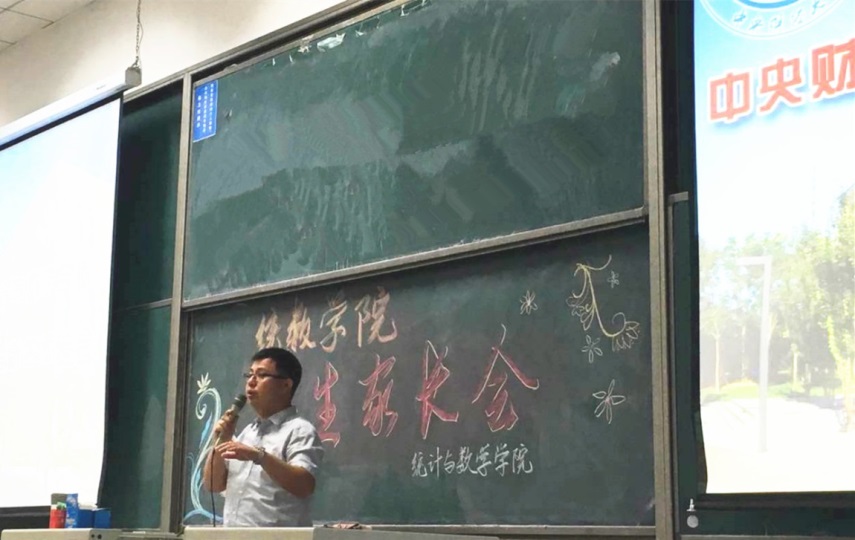 中央财
统数学院
生家长会
统计与数学学院